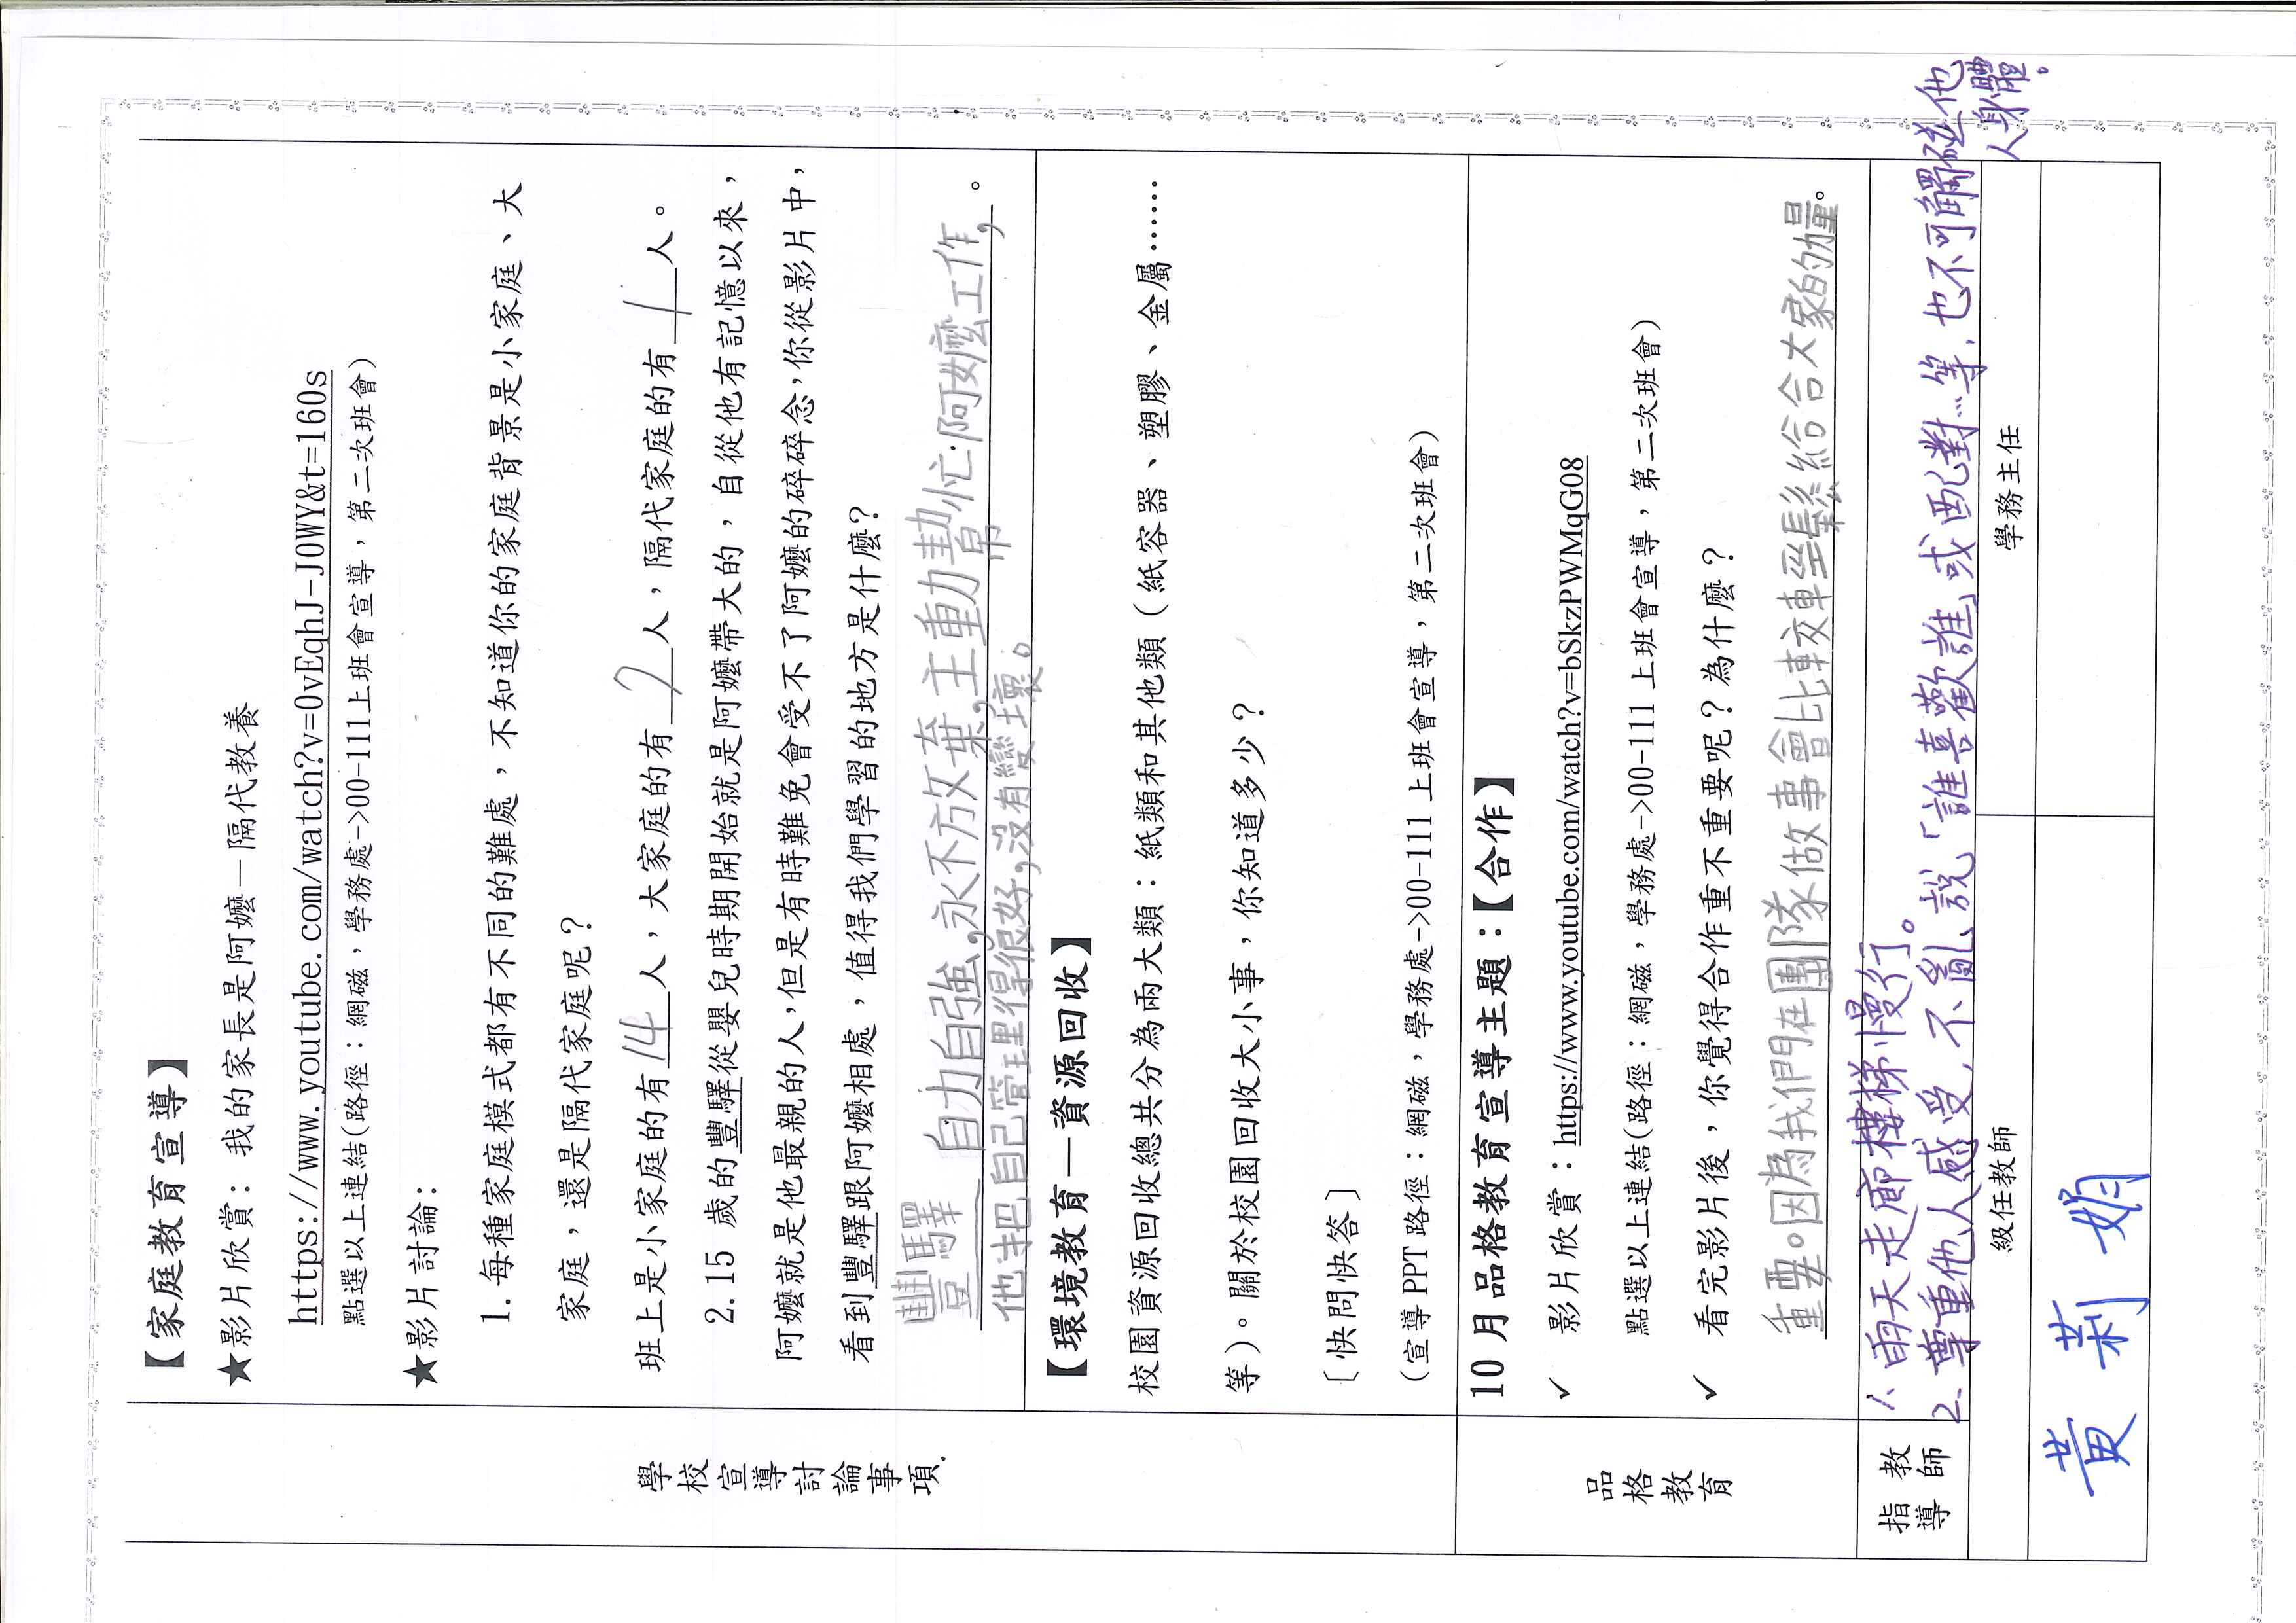 學校宣導討論事項
【家庭教育宣導】
★影片欣賞：我的家長是阿嬤－隔代教養
https://www.youtube.com/watch?v=0vEqhJ-J0WY&t=160s
點選以上連結(路徑：網磁，學務處->00-111上班會宣導，第二次班會)
★影片討論：
1.每種家庭模式都有不同的難處，不知道你的家庭背景是小家庭、大
家庭，還是隔代家庭呢？
班上是小家庭的有14人，大家庭的有2人，隔代家庭的有1人。
2.15 歲的豐驛從嬰兒時期開始就是阿嬤帶大的，自從他有記憶以來，
阿嬤就是他最親的人，但是有時難免會受不了阿嬤的碎碎念，你從影片中，
看到豐驛跟阿嬤相處，值得我們學習的地方是什麼？
豐驛 自力自強，永不放棄，主動幫忙阿嬤工作，。
他把自己管理得很好，沒有變壞。
【環境教育—資源回收】
校園資源回收總共分為兩大類：紙類和其他類（紙容器、塑膠、金屬……
等）。關於校園回收大小事，你知道多少？
〔快問快答〕
（宣導 PPT 路徑：網磁，學務處->00-111 上班會宣導，第二次班會）
品格教育
10 月品格教育宣導主題：【合作】
✓ 影片欣賞：https://www.youtube.com/watch?v=bSkzPWMqG08
點選以上連結(路徑：網磁，學務處->00-111 上班會宣導，第二次班會)
✓ 看完影片後，你覺得合作重不重要呢？為什麼？
重要。因為我們在團隊做事會比較輕鬆給合大家的力量。
指導教師
1、雨天走廊樓梯慢行。
2、尊重他人感受，不亂說「誰喜歡誰」或配對…等，也不可觸碰他
人身體。
級任教師
學務主任
黃莉娟